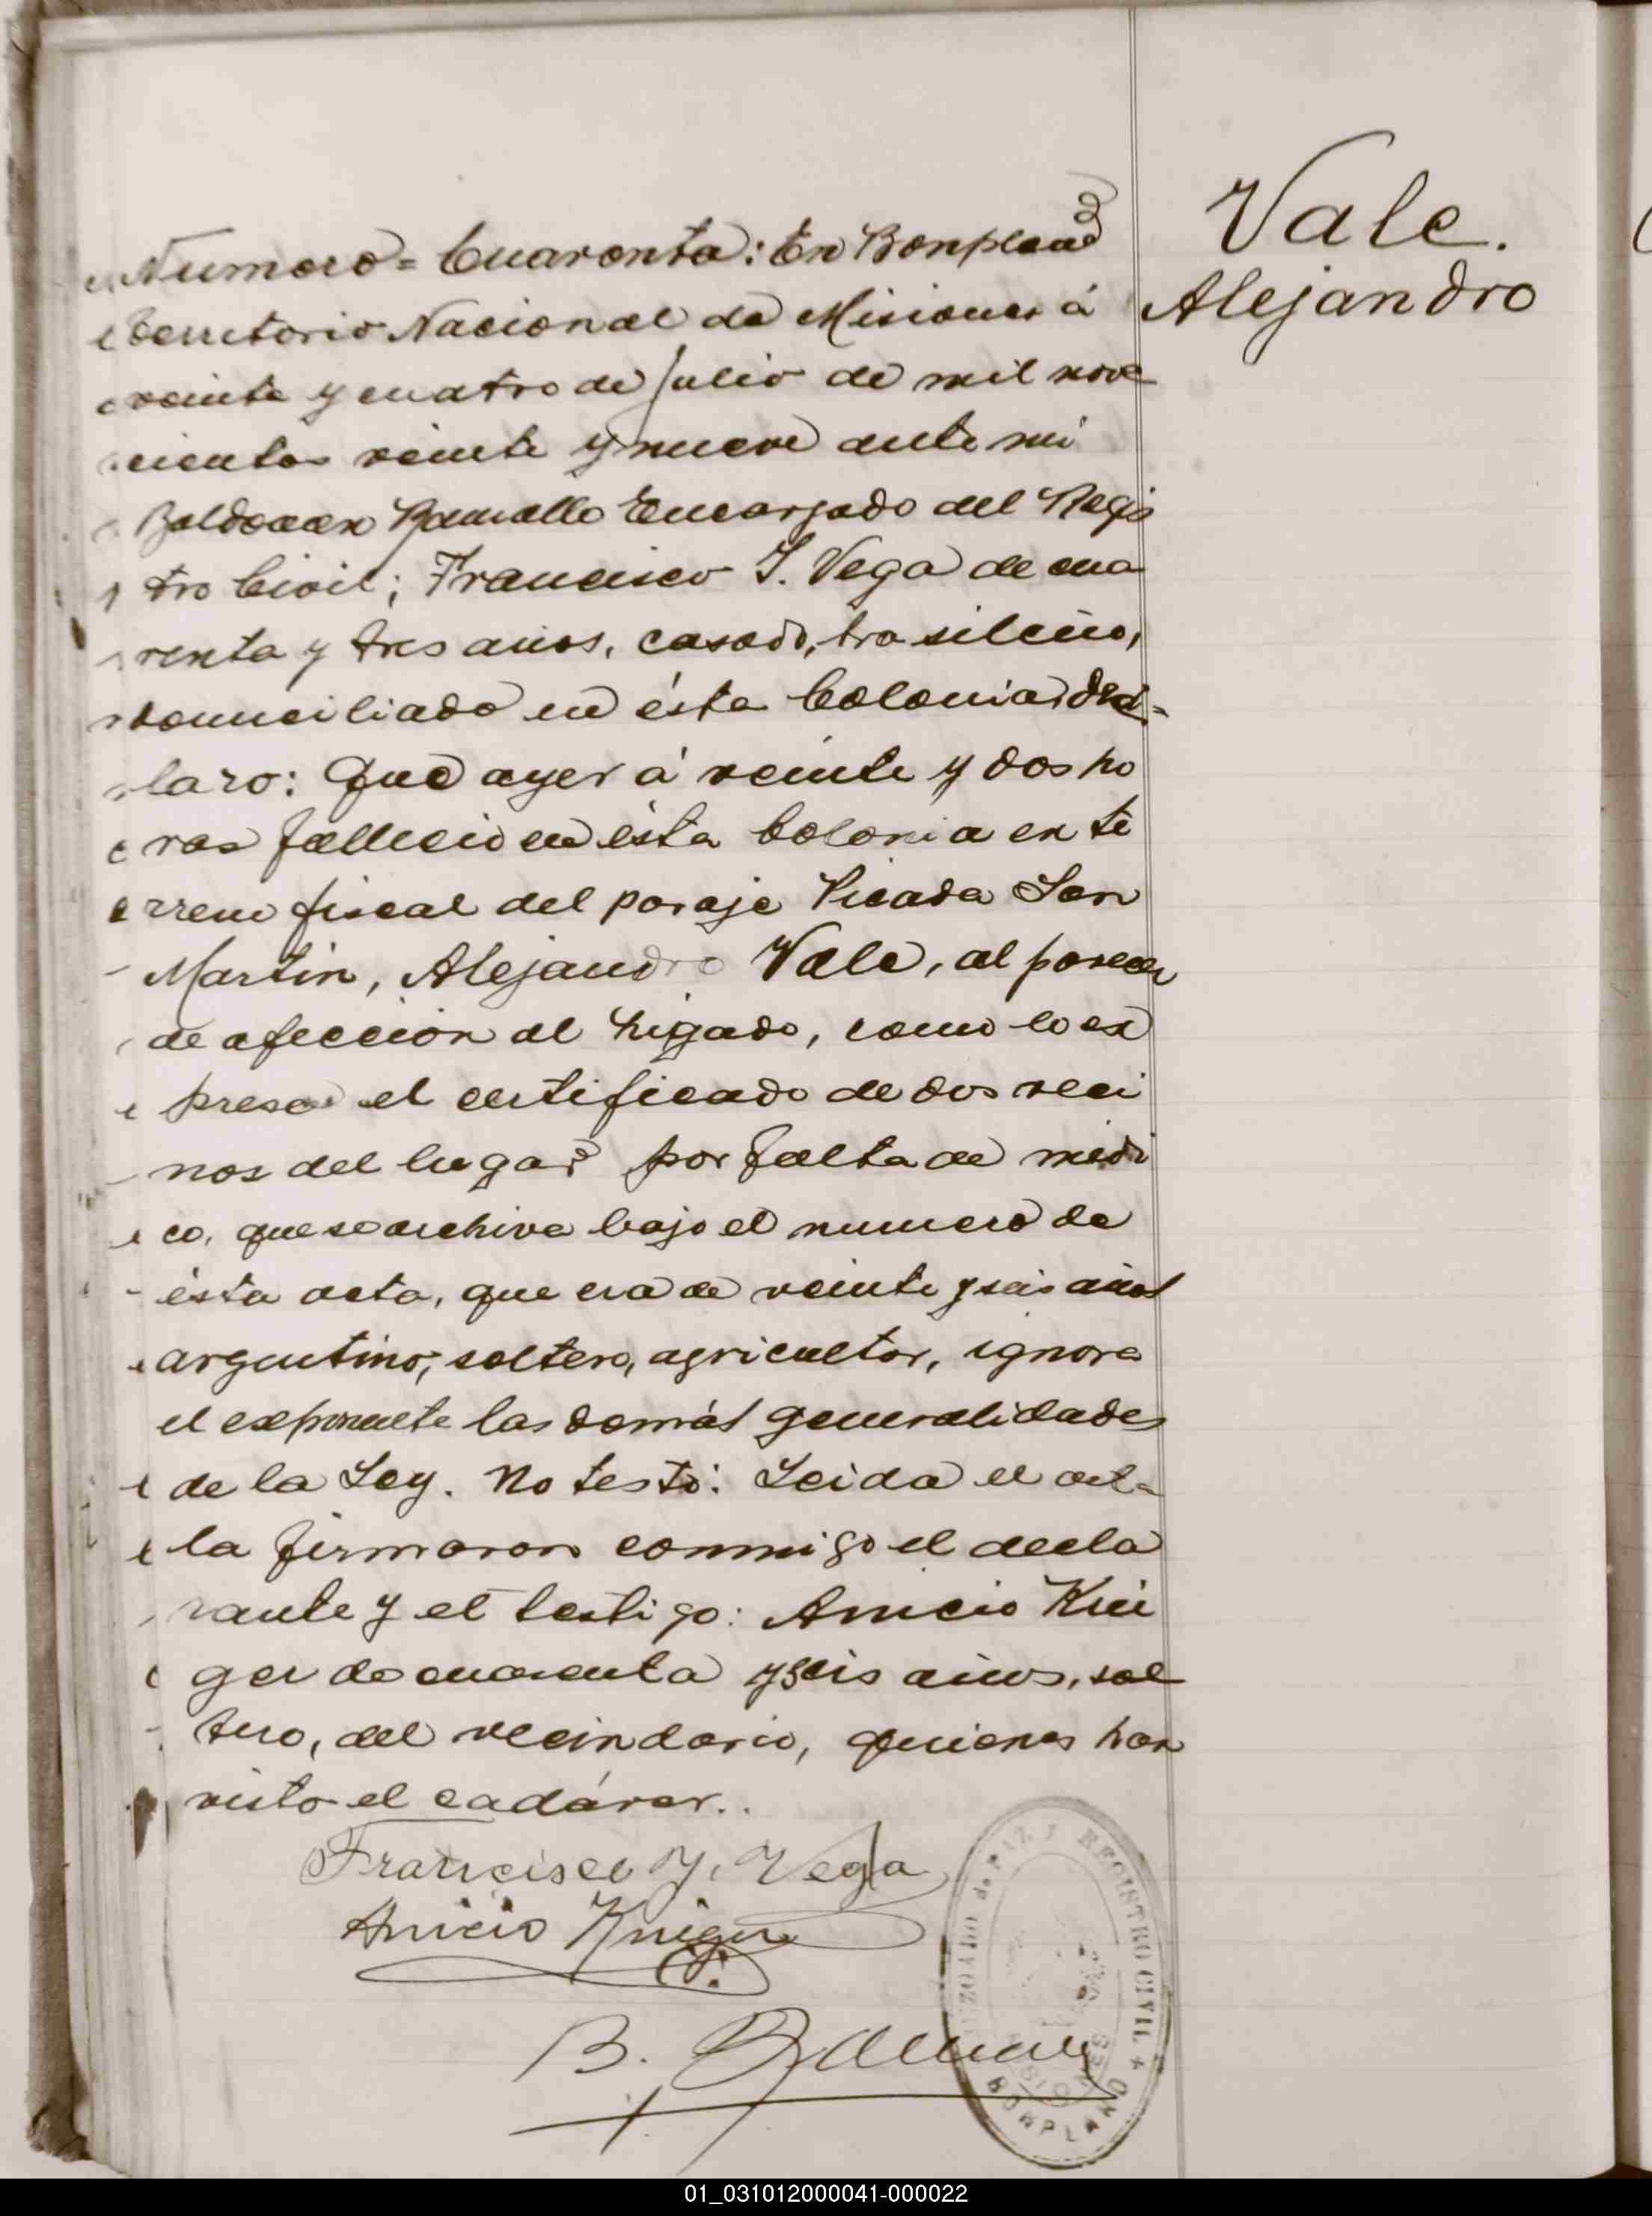 Vale.
Alejandro
Numero = Cuarenta: En Bonpland
Territorio Nacional de Misiones á
veinte y cuatro de Julio de mil nove
cientos veinte y nueve ante mi
Encargado del Regis
tro Civil; Francisco Y. Vega de cua
renta y tres años, casado, brasileño,
domiciliado en ésta Colonia, dec-
laro: Que ayer á veinte y dos ho
ras fallecio en ésta Colonia en te
rreno fiscal del paraje Picada San
Martin, Alejandro Vale, al parecer
de afeccion al higado, como lo ex
presa el certificado de dos veci
nos del lugar por falta de médi
co, que se archiva bajo el numero de
ésta acta, que era de veinte y seis años
argentino, soltero, agricultor, ignora
el exponente las demás generalidades
de la Ley. No testó. Leida el act-
la firmaron conmigo el decla
rante y el testigo: Anicio Krie
ger de cuarenta y seis años, sol
tero, del vecindario, quienes han
visto el cadáver..
Francisco Y. Vega
Anicio Krieger
B.
JUZGADO de PAZ Y REGISTRO CIVIL *
MISIONES
BONPLAND
01_031012000041-000022